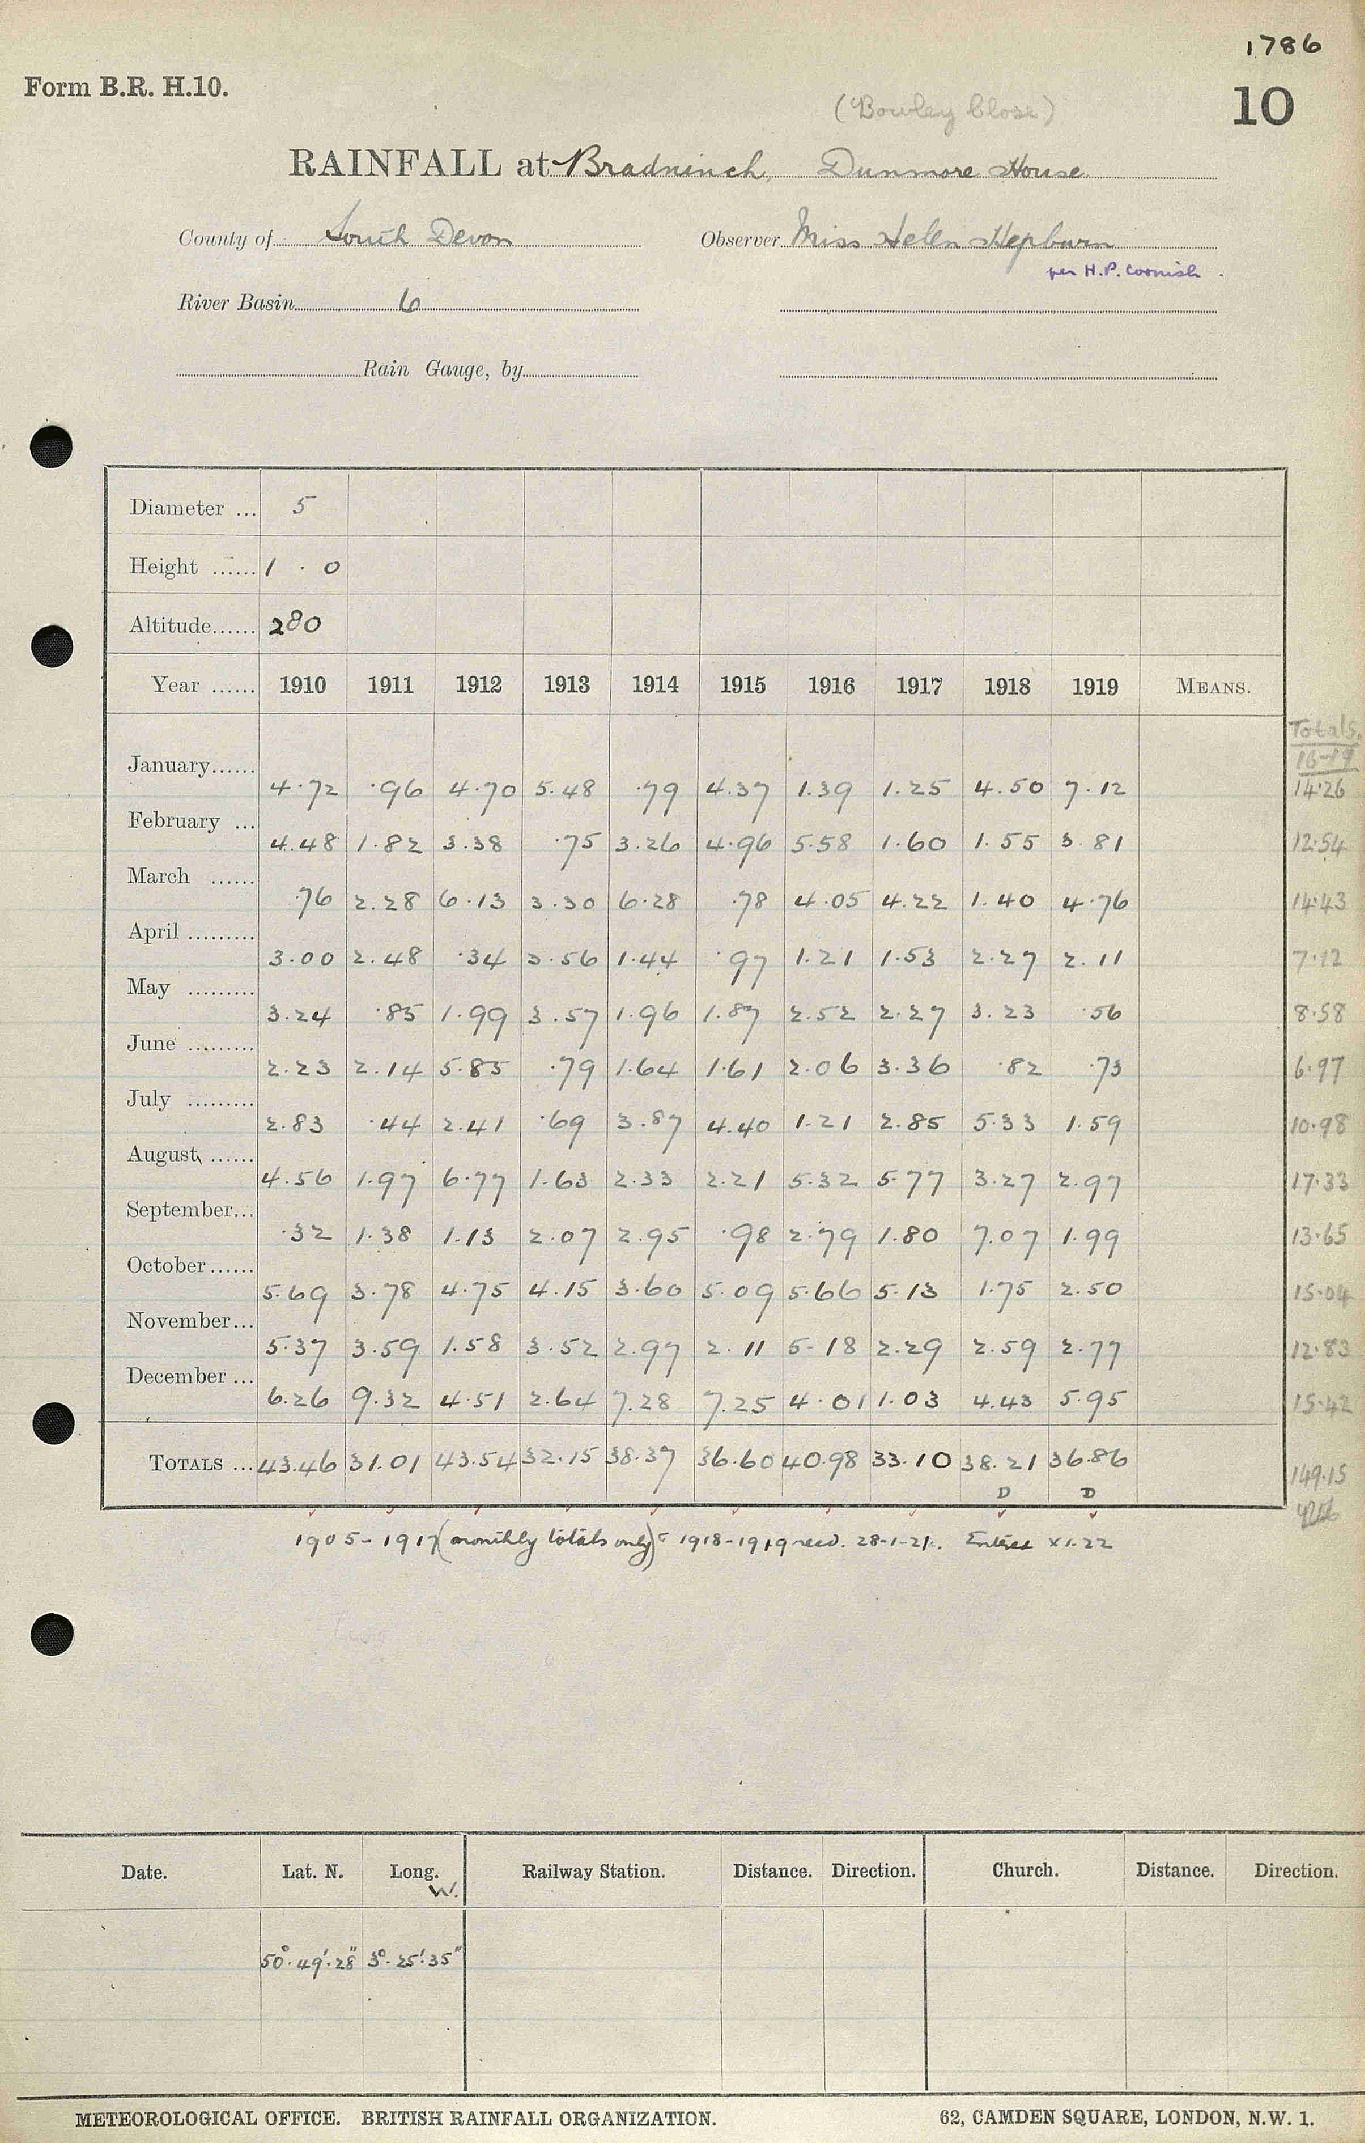 1786
Form B.R. H.10.
10
(Bowley Close)
RAINFALL at Bradninch, Dunmore House
County of South Devon Observer Miss Helen Hepburn
per H.P. Cornish.
River Basin 6
Rain Gauge, by
Diameter ... 5
Height ...... 1 . 0
Altitude...... 280
Year ...... 1910 1911 1912 1913 1914 1915 1916 1917 1918 1919 MEANS.
Totals
16-19
January...... 4.72 .96 4.70 5.48 .79 4.37 1.39 1.25 4.50 7.12 14.26
February ... 4.48 1.82 3.38 .75 3.26 4.96 5.58 1.60 1.55 3.81 12.54
March ...... .76 2.28 6.13 3.30 6.28 .78 4.05 4.22 1.40 4.76 14.43
April ......... 3.00 2.48 .34 3.56 1.44 .97 1.21 1.53 2.27 2.11 7.12
May ......... 3.24 .85 1.99 3.57 1.96 1.87 2.52 2.27 3.23 .56 8.58
June ......... 2.23 2.14 5.85 .79 1.64 1.61 2.06 3.36 .82 .73 6.97
July ......... 2.83 .44 2.41 .69 3.87 4.40 1.21 2.85 5.33 1.59 10.98
August, ...... 4.56 1.97 6.77 1.63 2.33 2.21 5.32 5.77 3.27 2.97 17.33
September... .32 1.38 1.13 2.07 2.95 .98 2.79 1.80 7.07 1.99 13.65
October...... 5.69 3.78 4.75 4.15 3.60 5.09 5.66 5.13 1.75 2.50 15.04
November... 5.37 3.59 1.58 3.52 2.97 2.11 5.18 2.29 2.59 2.77 12.83
December ... 6.26 9.32 4.51 2.64 7.28 7.25 4.01 1.03 4.43 5.95 15.42
TOTALS ... 43.46 31.01 43.54 32.15 38.37 36.60 40.98 33.10 38.21 36.86 149.15
D D
1905-1917 (monthly totals only) & 1918-1919 recd. 28-1-21. Entered XI.22
Date. Lat. N. Long. W. Railway Station. Distance. Direction. Church. Distance. Direction.
50°.49'.28" 3°.25'.35"
METEOROLOGICAL OFFICE. BRITISH RAINFALL ORGANIZATION. 62, CAMDEN SQUARE, LONDON, N.W. 1.